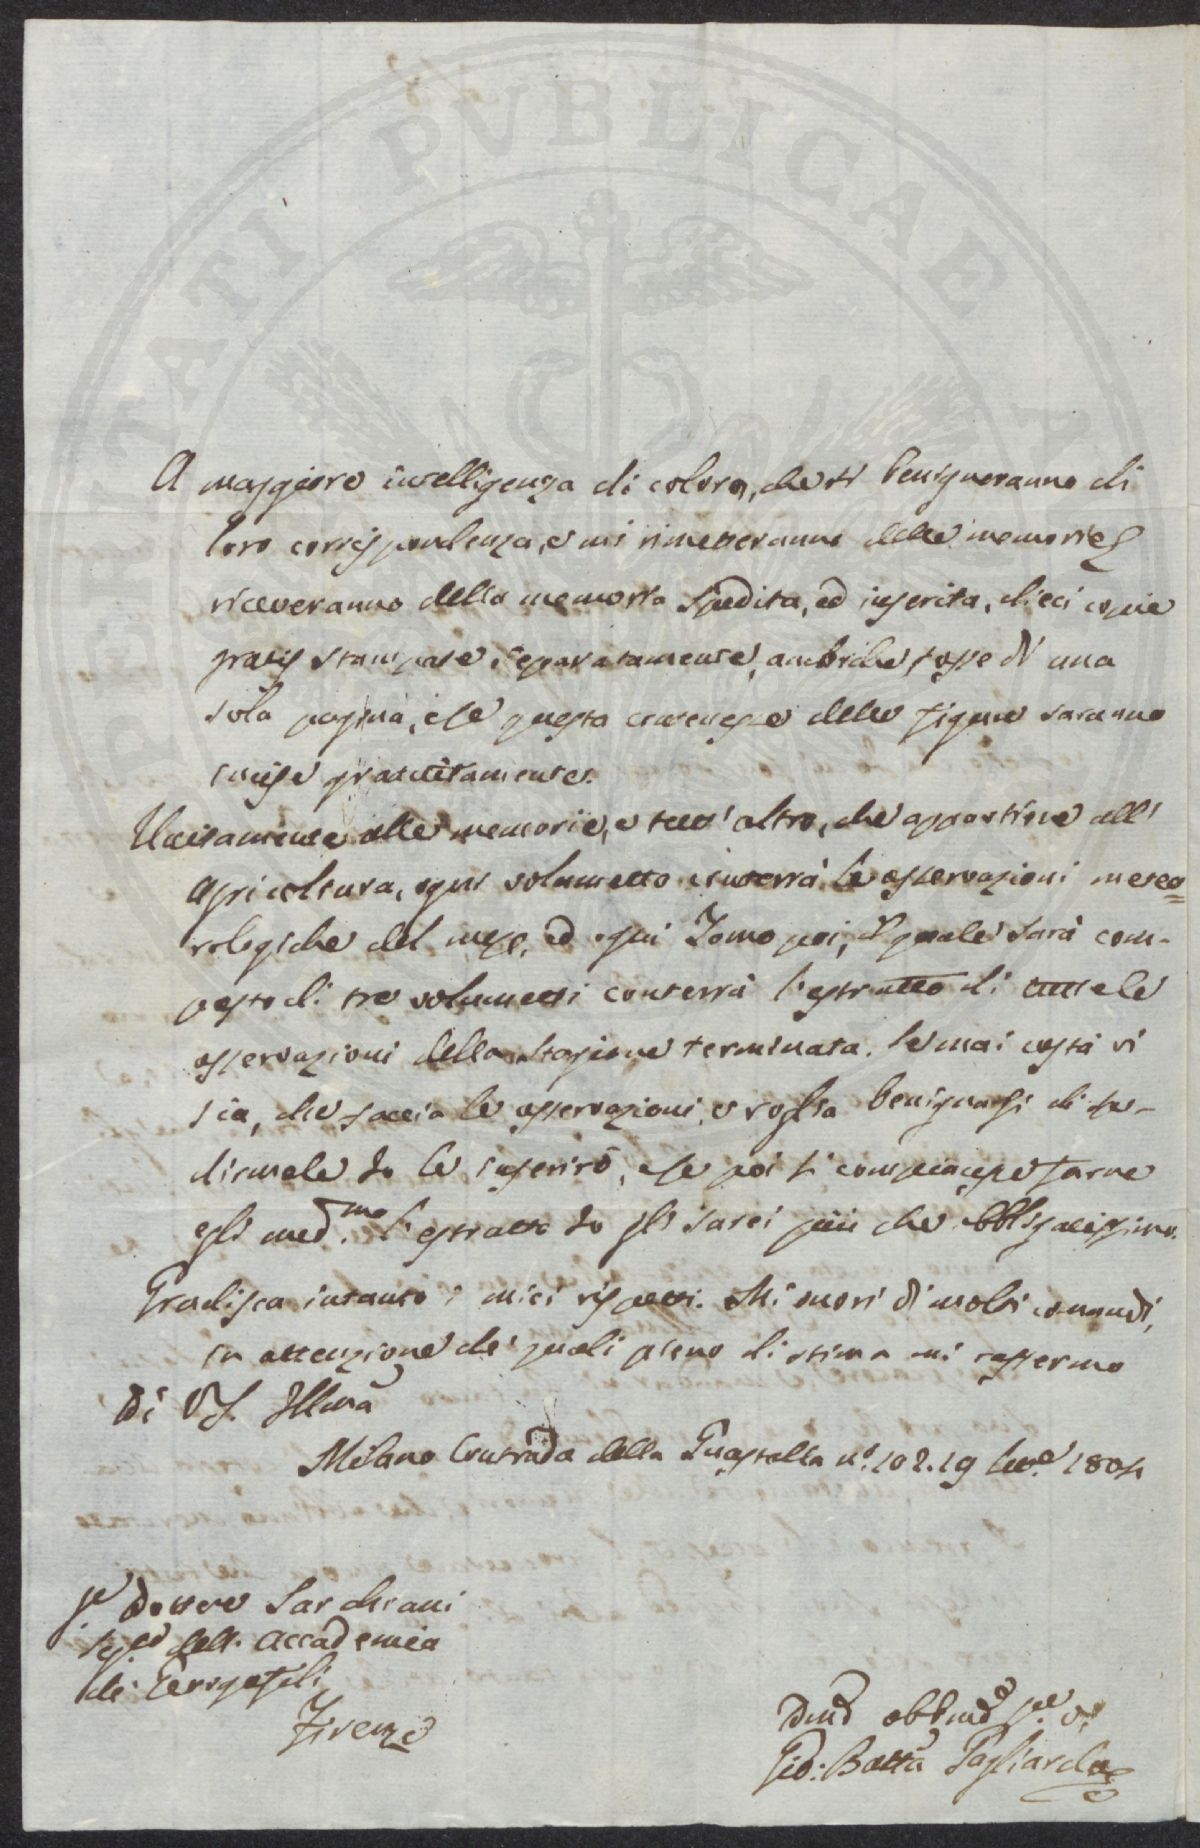 A maggiore intelligenza di coloro, che si benigneranno di
loro corrispondenza, e mi rimetteranno delle memorie
riceveranno della memoria spedita, ed inserita, dieci copie
gratis stampate separatamente, ambiche fosse di una
sola pagina, e se questa contenesse delle figure saranno
incise gratuitamente.
Unitamente alle memorie, e tutt'altro, che appartiene all'
Agricoltura, ogni volumetto conterrà le osservazioni meteo=
rologiche del mese, ed ogni Tomo poi, il quale sarà com-
posto di tre volumetti conterrà l'estratto di tutte le
osservazioni della stagione terminata. Se mai costà vi
sia, che faccia le osservazioni, e voglia benignarsi di spe-
dirmele Io le inserirò, e se poi si compiacesse farne
egli med.mo l'estratto Io gli sarei più che obbligatissimo.
Gradisca intanto i miei rispetti. Mi onori di molti comandi,
in attenzione de' quali pieno di stima mi raffermo
Di V.S. Illma
Milano Contrada della Guastalla n.o 102. 19 1804
Sr Dottore Sarchiani
Seg.rio dell. Accademia
de' Georgofili
Firenze
Dmo obbmo Sre
Gio: Batta Gagliardo
PVBLICAE